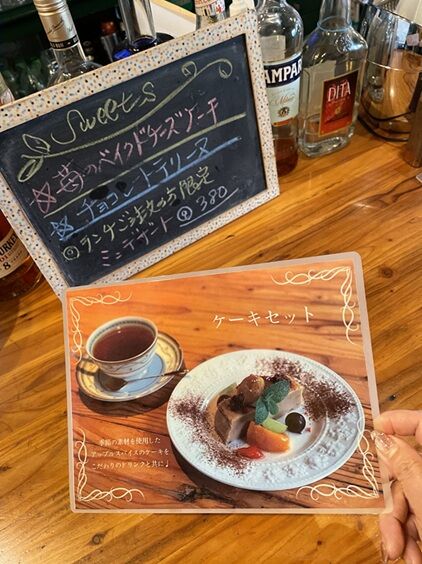 Sweets
苺のベイクドチーズケーキ
チョコレートテリーヌ
ランチご注文の方限定
ミニデザート 380
CAMPARI
DITA
ケーキセット
季節の素材を使用した
アップルスパイスのケーキを
こだわりのドリンクと共に♩